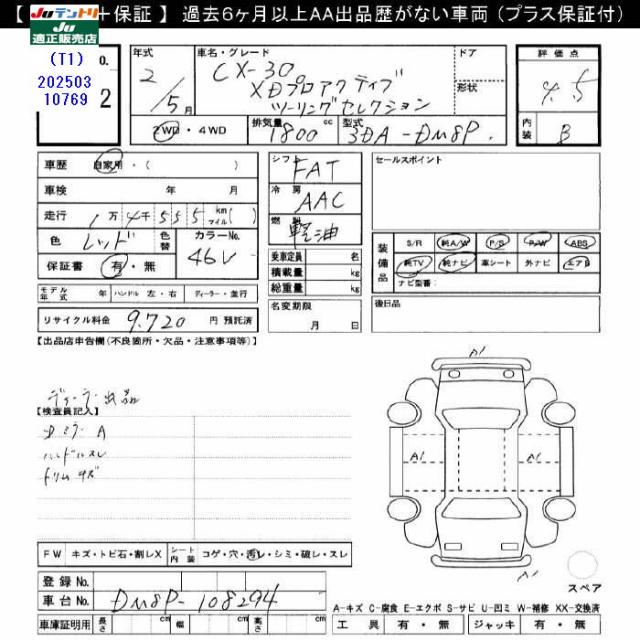 【 Juテントリ＋保証 】 過去6ヶ月以上AA出品歴がない車両（プラス保証付）
Ju 適正販売店
(T1)
202503
10769
O.
2
年式
2/5月
車名・グレード
CX-30
XDプロアクティブ
ツーリングセレクション
ドア
形状
評価点
4.5
2WD・4WD
排気量 1800 cc
型式 3DA-DM8P
内装 B
車歴 自家用・( )
車検 年 月
走行 1万4千555 km マイル( )
色 レッド
色替
カラーNo. 46V
保証書 有・無
シフト FAT
冷房 AAC
燃料 軽油
乗車定員 名
積載量 kg
総重量 kg
名変期限
月 日
セールスポイント
装備品
S/R 純A/W P/S P/W ABS
純TV 純ナビ 革シート 外ナビ エアB
ナビ型番:
後日品
モデル年式 年 ハンドル 左・右 ディーラー・並行
リサイクル料金 9.720 円 預託済
【出品店申告欄(不良箇所・欠品・注意事項等)】
ディーラー出品
【検査員記入】
Dミラー A
ハンドルスレ
トリムキズ
A1
A1
A1
A1
FW キズ・トビ石・割レX シート内装 コゲ・穴・汚レ・シミ・破レ・スレ
登録 No.
車台 No. DM8P-108294
車庫証明用 長さ cm 幅 cm 高さ cm
スペア
A-キズ C-腐食 E-エクボ S-サビ U-凹ミ W-補修 XX-交換済
工具 有・無 ジャッキ 有・無